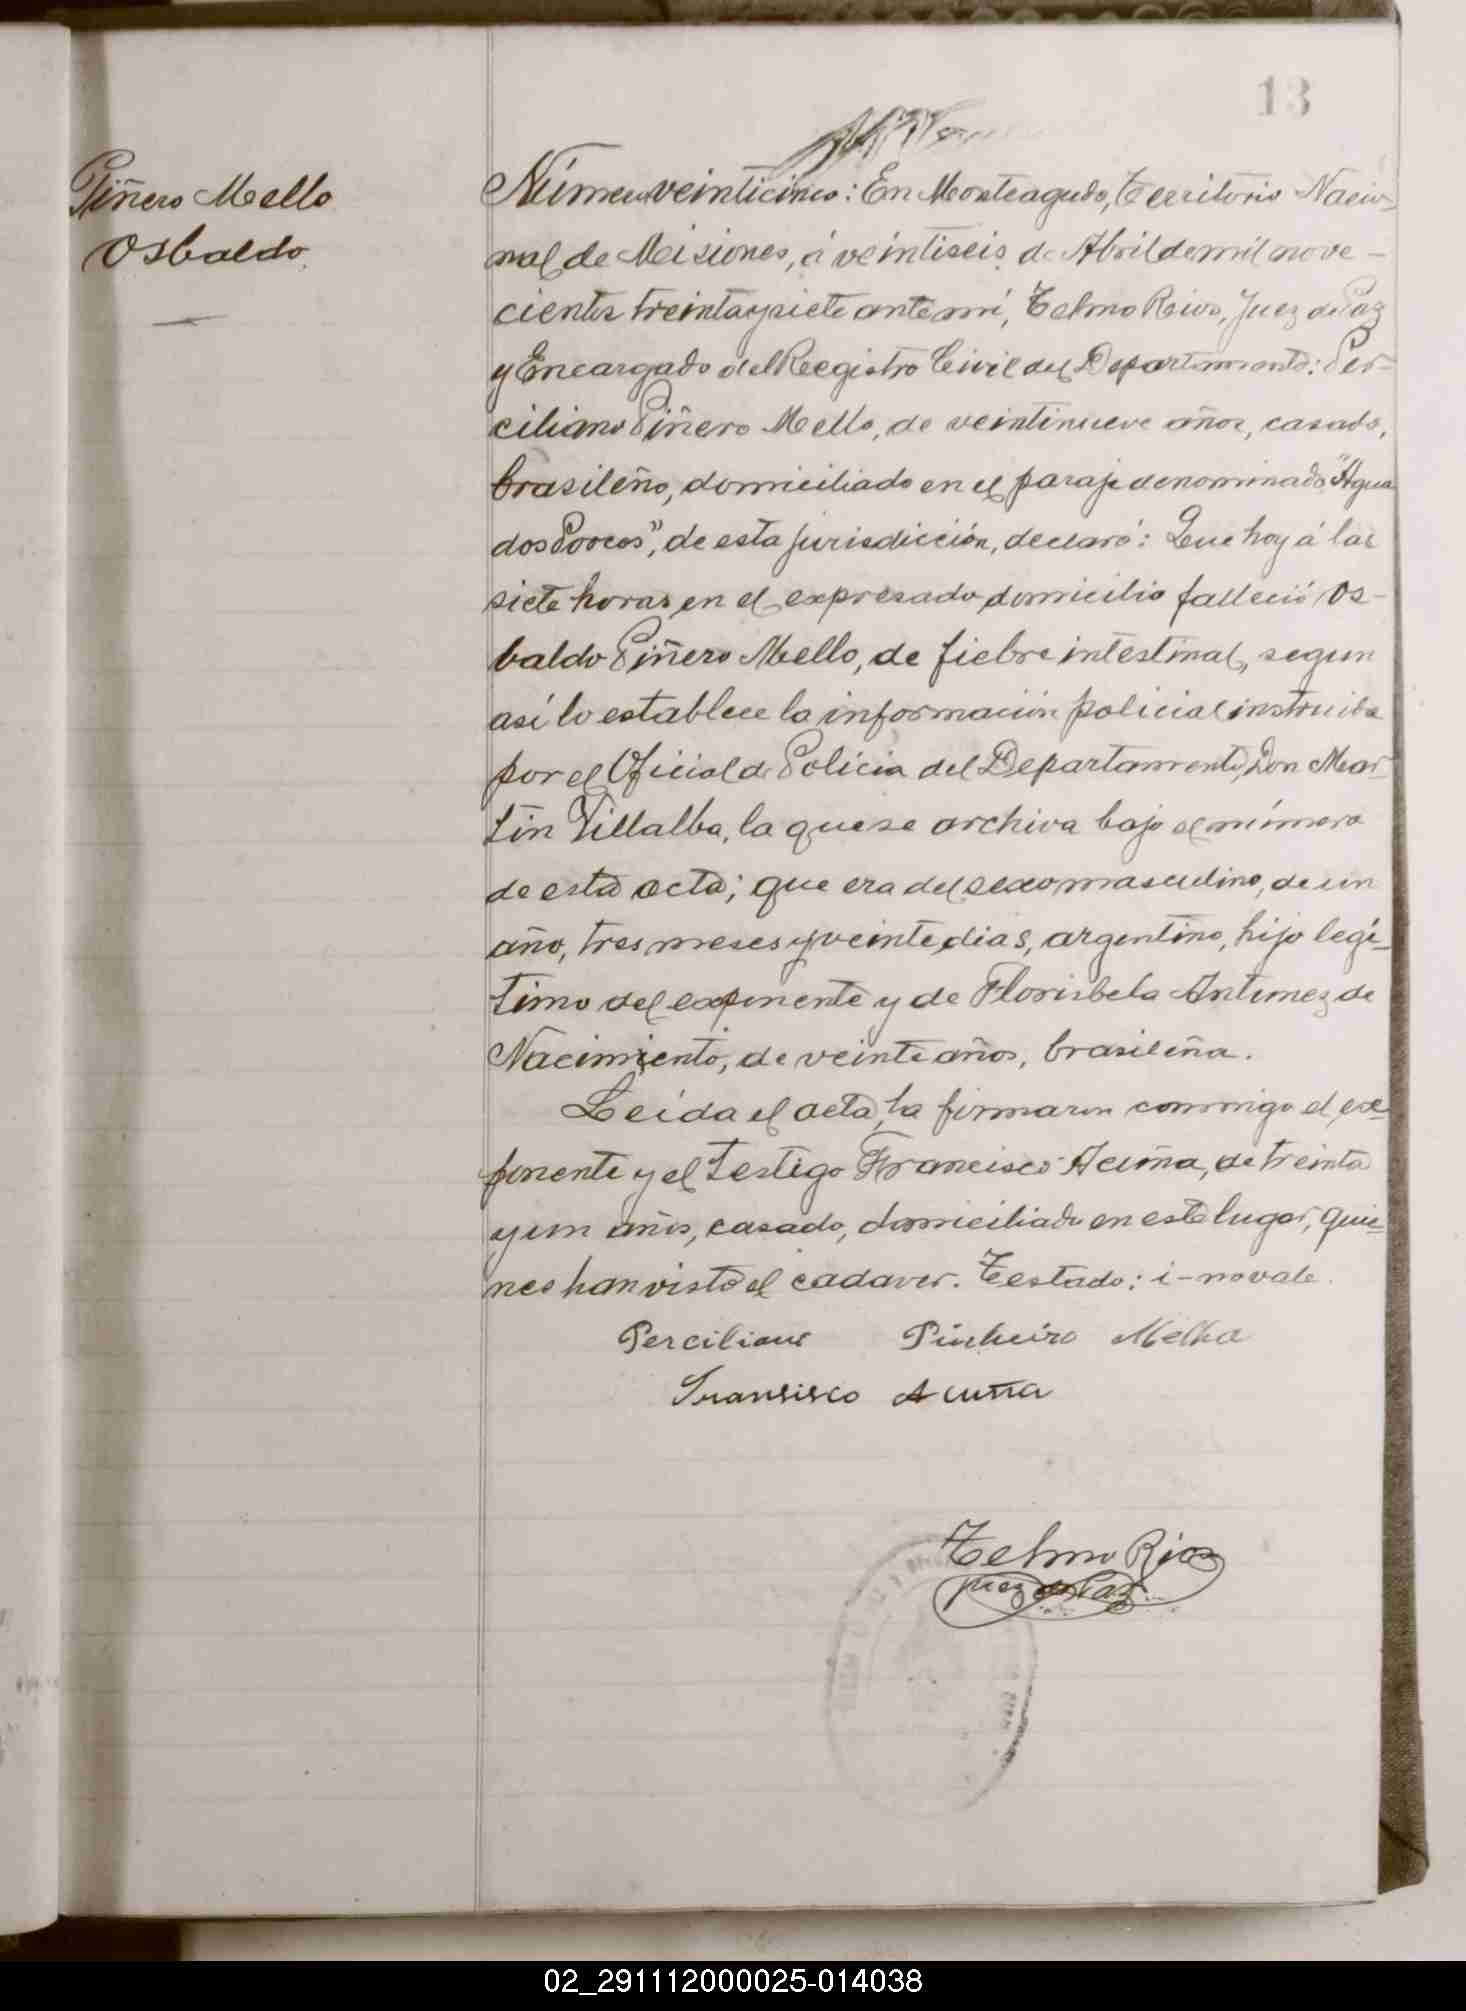 13
Piñero Mello
Osbaldo
Número veinticinco: En Monteagudo, Territorio Nacio-
nal de Misiones, á veintiseis de Abril de mil nove-
cientos treinta y siete ante mí, Telmo Rios, Juez de Paz
y Encargado del Registro Civil del Departamento: Per-
ciliano Piñero Mello, de veintinueve años, casado,
brasileño, domiciliado en el paraje denominado "Agua
dos Porcos", de esta jurisdicción, declaró: Que hoy á las
siete horas, en el expresado domicilio falleció Os-
baldo Piñero Mello, de fiebre intestinal, segun
así lo establece la información policial instruida
por el Oficial de Policia del Departamento, Don Mar-
tín Villalba, la que se archiva bajo el número
de esta acta; que era del sexo masculino, de un
año, tres meses y veinte dias, argentino, hijo legí-
timo del exponente y de Florisbela Antunez de
Nacimiento, de veinte años, brasileña.
Leída el acta, la firmaron conmigo el ex-
ponente y el testigo Francisco Acuña, de treinta
y un años, casado, domiciliado en este lugar, quie-
nes han visto el cadaver. Testado: i-no vale.
Perciliano Pinheiro Melha
Fransisco Acuña
Telmo Rios
Juez de Paz
02_291112000025-014038